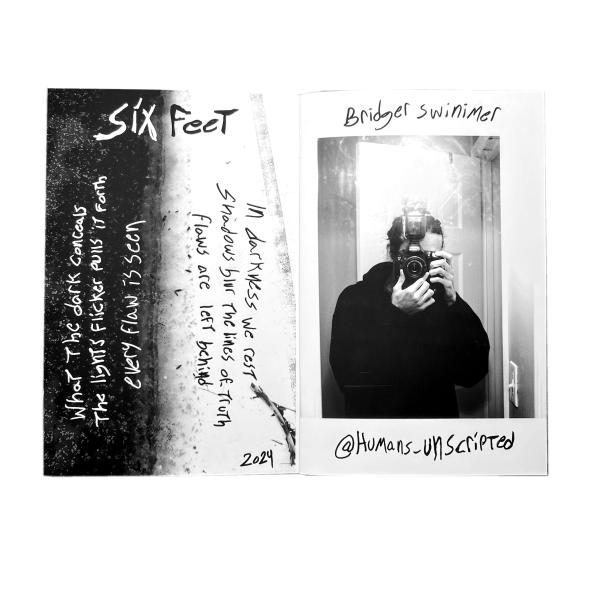 SIX FEET
WHAT THE dark conceals
THE lights flicker pulls it forth
every flaw is seen
In darkness we rest
Shadows blur The lines of Truth
flaws are left behind
2024
Bridger Swinimer
@Humans_unscripted